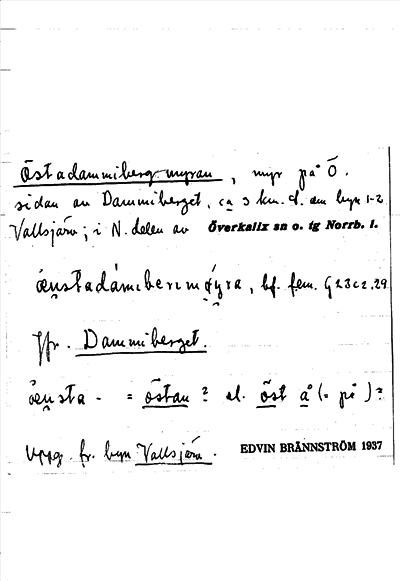 Östadammiberg-myran, myr på Ö.
sidan av Dammiberget, ca 3 km. d. om byn 1-2
Vallsjärv; i N. delen av Överkalix sn o. tg Norrb. l.
bf. fem. G 23 c 2.29
Jfr. Dammiberget.
= östan? el. öst å (= på)?
Uppg. fr. byn Vallsjärv.
EDVIN BRÄNNSTRÖM 1937